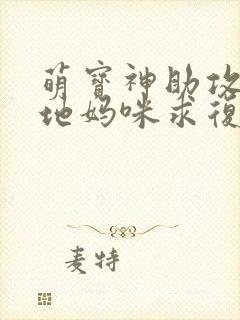 萌寶神助攻
地媽咪求復
麦特